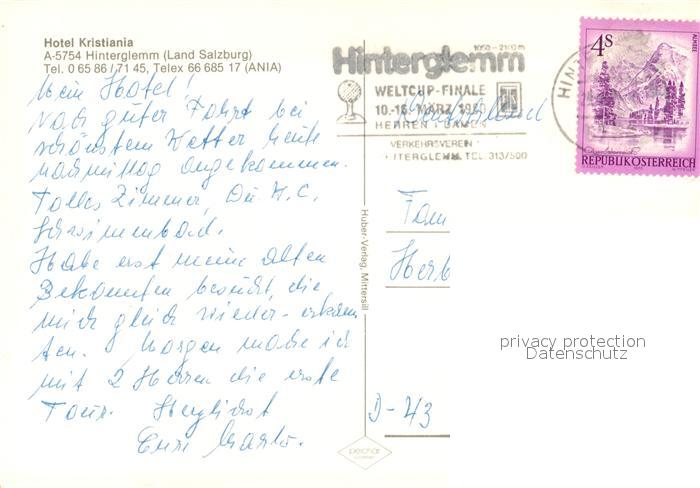 Hotel Kristiania
A-5754 Hinterglemm (Land Salzburg)
Tel. 0 65 86 / 71 45, Telex 66 685 17 (ANIA)
Mein Hotel!
Nach guter Fahrt bei
schönstem Wetter heute
nachmittag angekommen.
Tolles Zimmer, Du W.C.
Schwimmbad.
Habe erst meine alten
Bekannten besucht, die
mich gleich wieder-erkann
ten. Morgen mache ich
mit 2 Herren die erste
Tour. Herzlichst
1050 - 2100 m
Hinterglemm
WELTCUP-FINALE
10.-16. MÄRZ
HERREN DAMEN
VERKEHRSVEREIN
TEL. 313/500
HINT
4S
REPUBLIK ÖSTERREICH
Fam
Herb
D-43
Huber-Verlag, Mittersill
privacy protection
Datenschutz